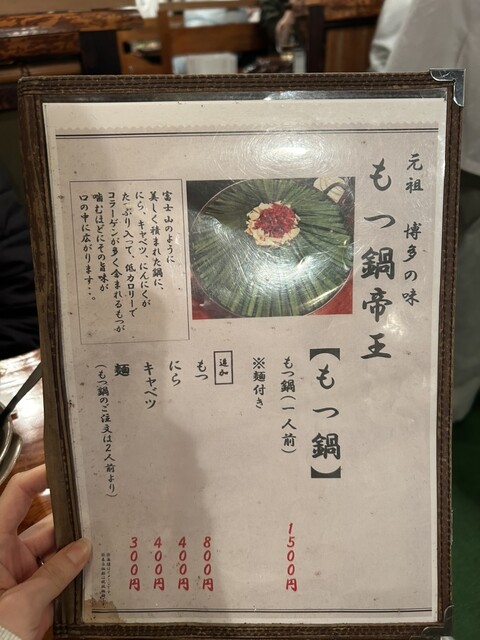 元祖 博多の味
もつ鍋帝王
富士山のように
美しく積まれた鍋に、
にら、キャベツ、にんにくが
たっぷり入って、低カロリーで
コラーゲンが多く含まれるもつが
噛むほどにその旨味が
口の中に広がります・・。
【もつ鍋】
もつ鍋(一人前) 1500円
※麺付き
追加
もつ 800円
にら 400円
キャベツ 400円
麺 300円
(もつ鍋のご注文は2人前より)